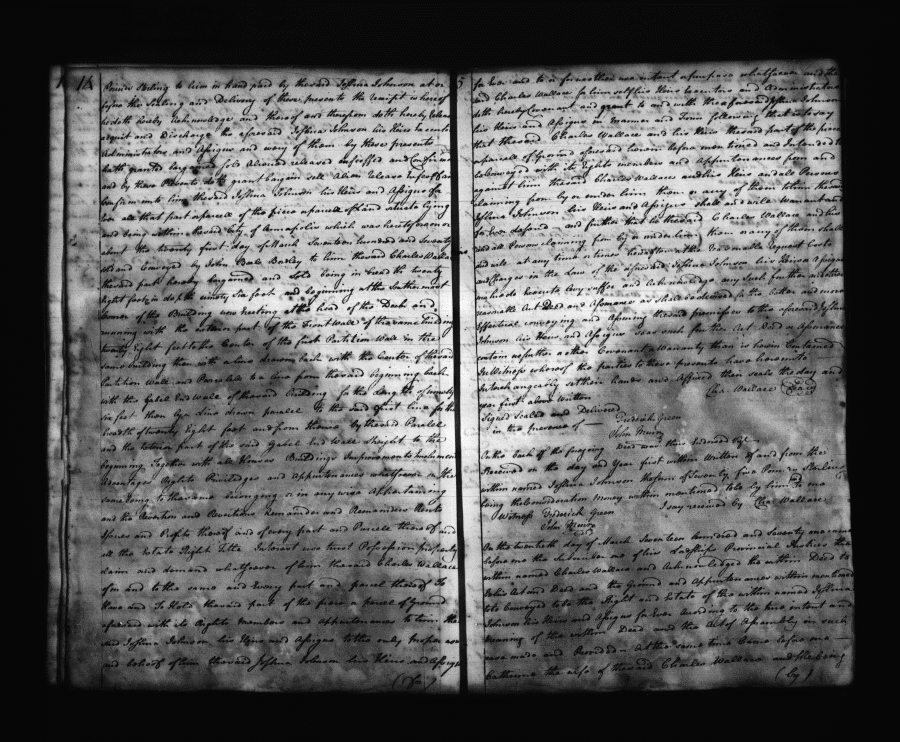 16
Pounds Sterling to him in hand paid by the said Joshua Johnson at or
before the Sealing and Delivery of these presents the receipt whereof
he doth hereby acknowledge and thereof and therefrom doth hereby release
acquit and Discharge the aforesaid Joshua Johnson his Heirs Executors
Administrators and Assigns and every of them by these presents
hath granted bargained sold Aliened released enfeoffed and Confirmed
and by these Presents doth grant bargain sell Alien release enfeoff and
Confirm unto him the said Joshua Johnson his Heirs and Assigns for
Ever all that part or parcel of the piece or parcel of Land situate lying
and being within the said City of Annapolis which was heretofore on or
about the twenty first day of March Seventeen hundred and seventy
and Conveyed by John Beale Boxley to him the said Charles Wallace
the said part hereby bargained and sold being in breadth twenty
Eight feet in depth ninety six feet and beginning at the Southermost
Corner of the Building now resting at the head of the Dock and
running with the part of the Front wall of the same Building
twenty Eight feet to the Center of the first Partition Wall in the
same building then with a line drawn with the Center of the said
Partition Wall and Parallel to a line from the said beginning back
with the Gabel End wall of the said Building for the length of ninety
six feet then by a line drawn parallel to the said first line for the
breadth of twenty Eight feet and from thence by the said Parallel
and the part of the said Gabel End Wall straight to the
beginning Together with all Houses Buildings Improvements
Advantages Rights Priviledges and appurtenances whatsoever to the
same being or to the same belonging or in any wise Appertaining
and the Reversion and Reversions Remainder and Remainders Rents
Issues and Profits thereof and of every part and Parcel thereof and
all the Estate Right Title Interest use trust Possession property
claim and demand whatsoever of him the said Charles Wallace
of in and to the same and Every part and parcel thereof To
Have and To Hold the said part of the piece or parcel of Ground
aforesaid with its Rights Members and appurtenances to him the
said Joshua Johnson his Heirs and Assigns to the only proper use
and behoof of him the said Joshua Johnson his Heirs and Assigns
(for)
for Ever and to or for no other use intent or purpose whatsoever and the
said Charles Wallace for himself his Heirs Executors and Administrators
doth hereby Covenant and grant to and with the aforesaid Joshua Johnson
his Heirs and Assigns in manner and Form following that is to say
that the said Charles Wallace and his Heirs the said part of the piece
or parcel of Ground aforesaid herein before mentioned and Intended to
be Conveyed with its Rights members and Appurtenances from and
against him the said Charles Wallace and his Heirs and all Persons
claiming from by or under him them or any of them to him the said
Joshua Johnson his Heirs and Assigns shall and will Warrant and
for Ever defend and further that he the said Charles Wallace and his
Heirs and all Persons claiming from by or under him them or any of them shall
and will at any time or times hereafter at the reasonable request Costs
and Charges in the Law of the aforesaid Joshua Johnson his Heirs or Assigns
make do Execute and Acknowledge any such further or other
reasonable Act Deed and Assurance as shall be devised for the better and more
effectual conveying and Assuring the said premises to the aforesaid Joshua
Johnson his Heirs and Assigns so as such further Act Deed or Assurance
contain no further or other Covenant or Warranty than is herein Contained
In Witness whereof the parties to these presents have hereunto
Interchangeably set their hands and Affixed their seals the day and
year first above Written
Chas. Wallace (Seal)
Signed Sealed and Delivered
in the presence of —
Frederick Green
John Muir
On the back of the foregoing Deed was thus Indorsed Viz.
Received on the day and Year first within Written of and from the
within named Joshua Johnson the sum of Seventy five Pounds Sterling
being the Consideration Money within mentioned to be by him to me
I say received by Chas. Wallace
Witness Frederick Green
John Muir
On the twentieth day of March Seventeen hundred and Seventy one came
before me the Subscriber one of his Lordships Provincial Justices the
within named Charles Wallace and Acknowledged the within Deed to
be his Act and Deed and the Ground and Appurtenances within mentioned
to be Conveyed to be the Right and Estate of the within named Joshua
Johnson his Heirs and Assigns for Ever According to the true intent and
meaning of the within Deed and the Act of Assembly in such
case made and Provided — At the same time Came before me —
Catharine the wife of the said Charles Wallace and she being
(by)